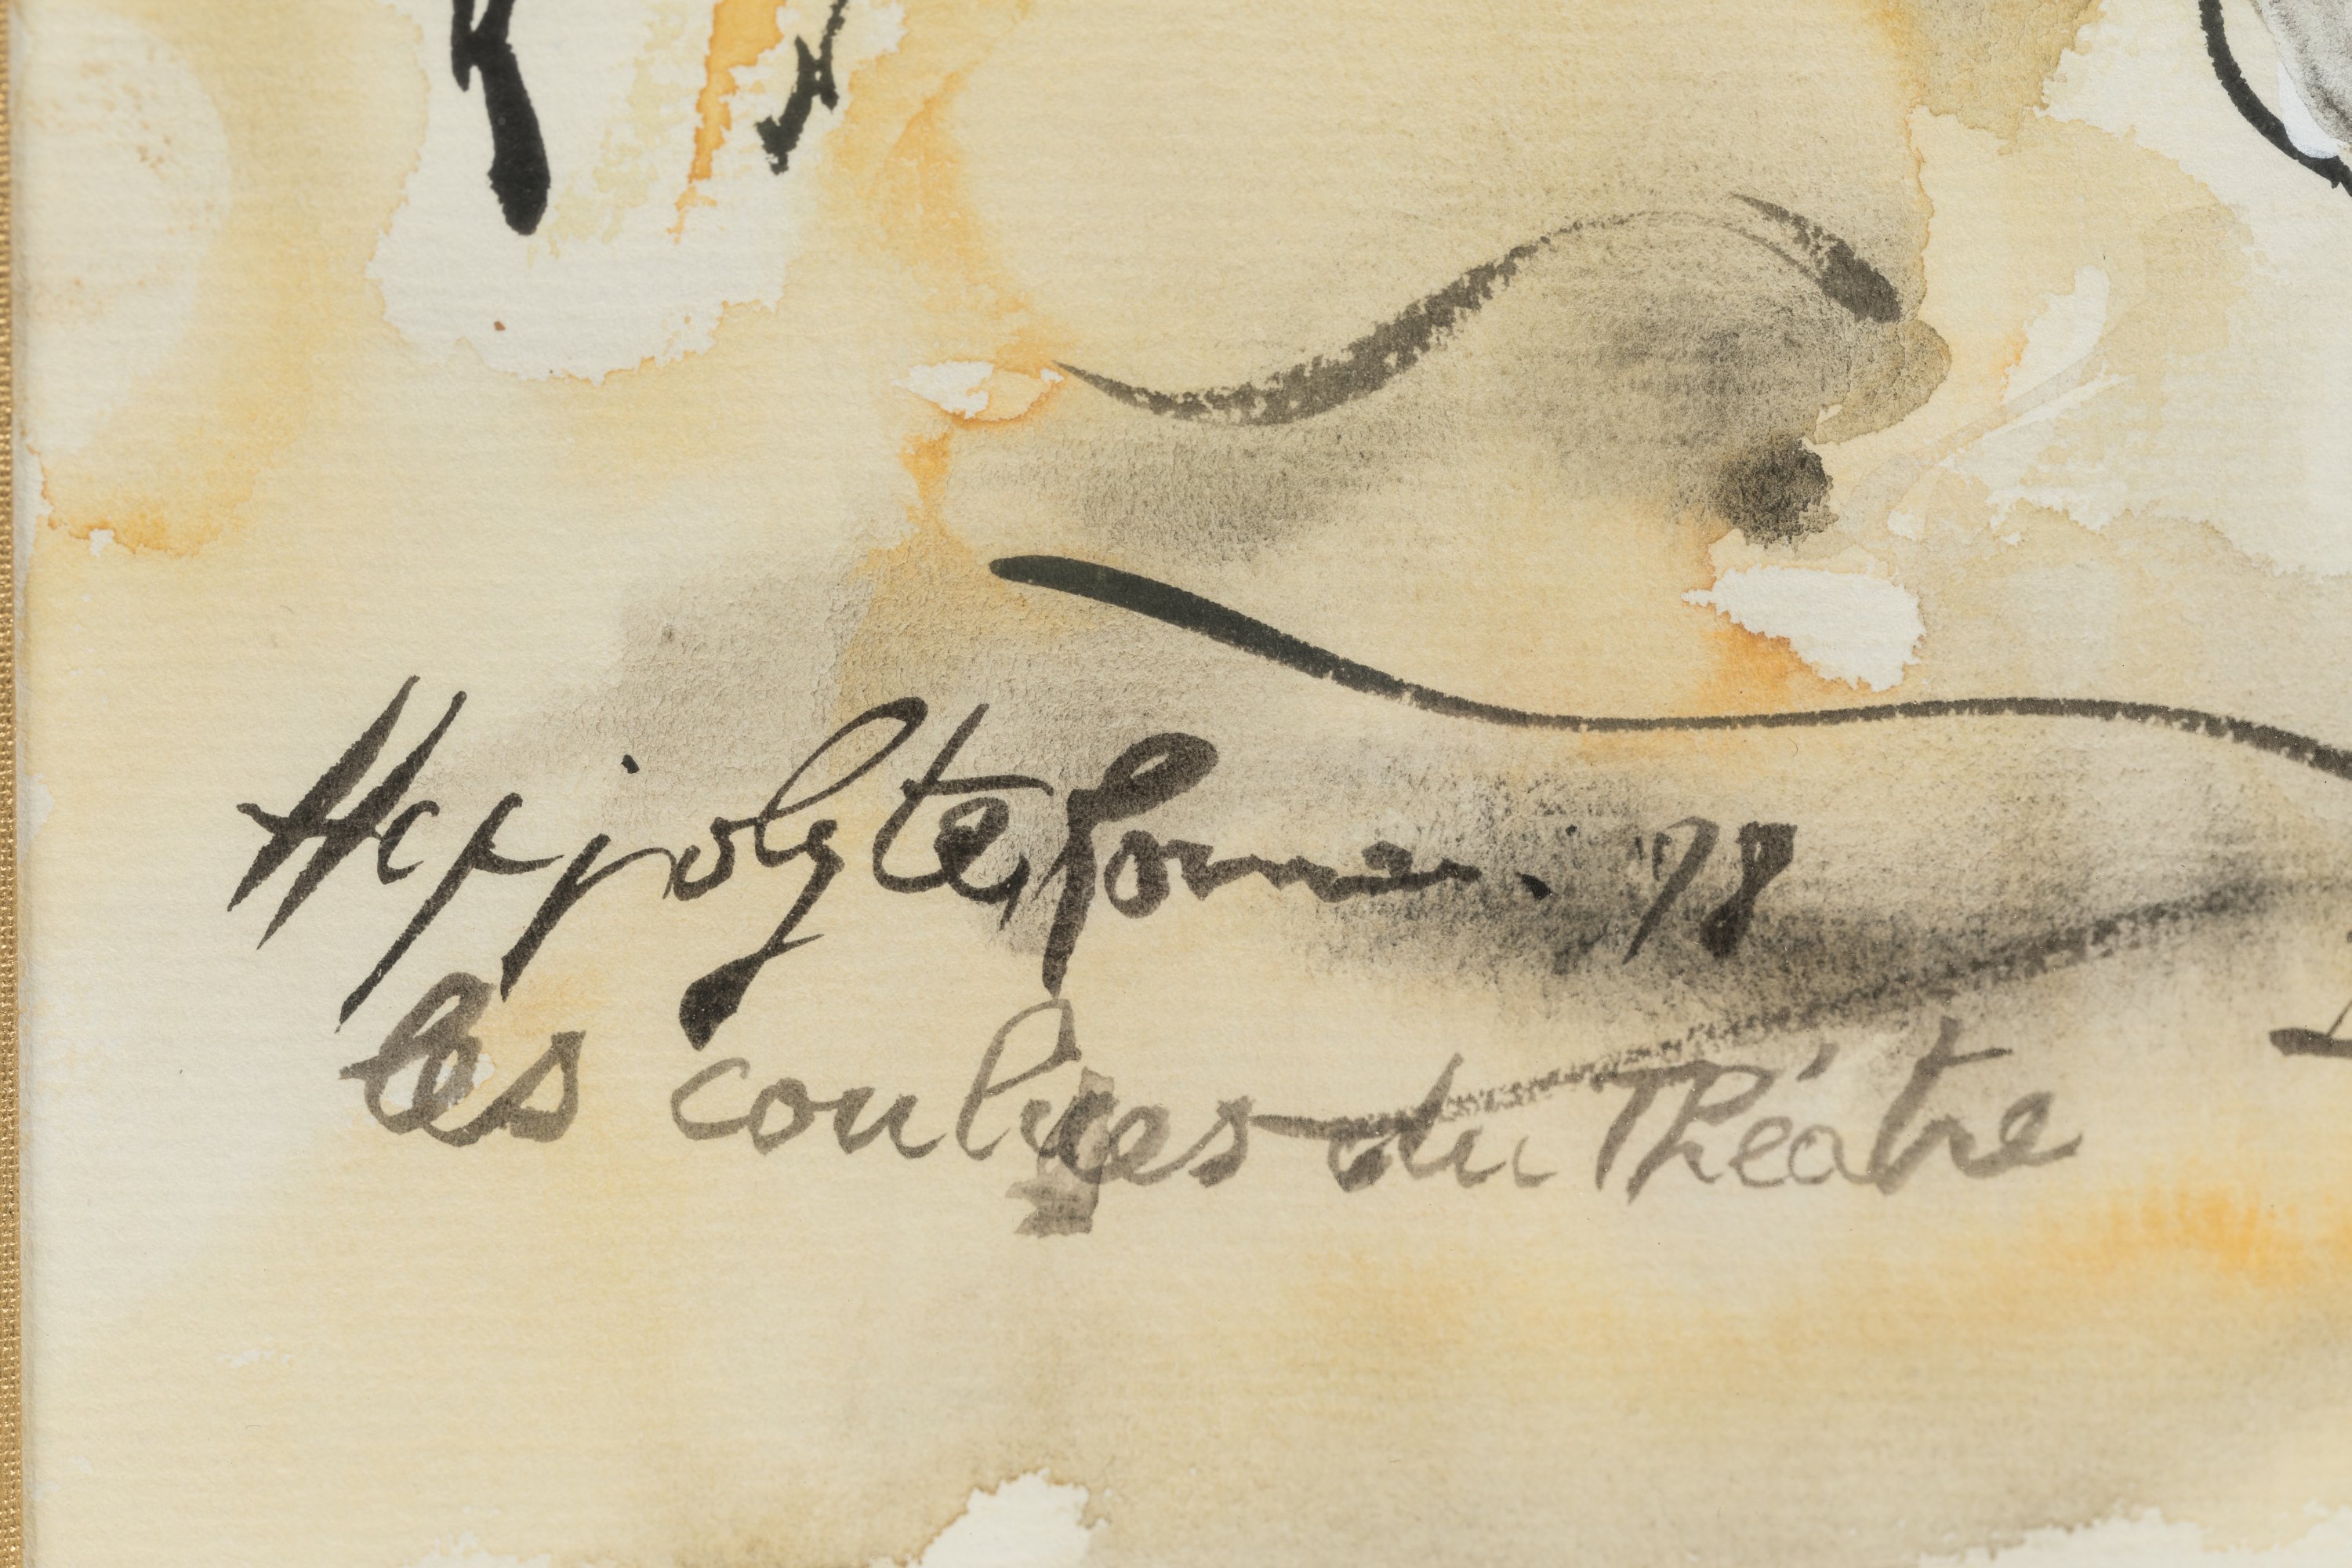 Hippolyte Romain. 98
les coulisses du Théatre